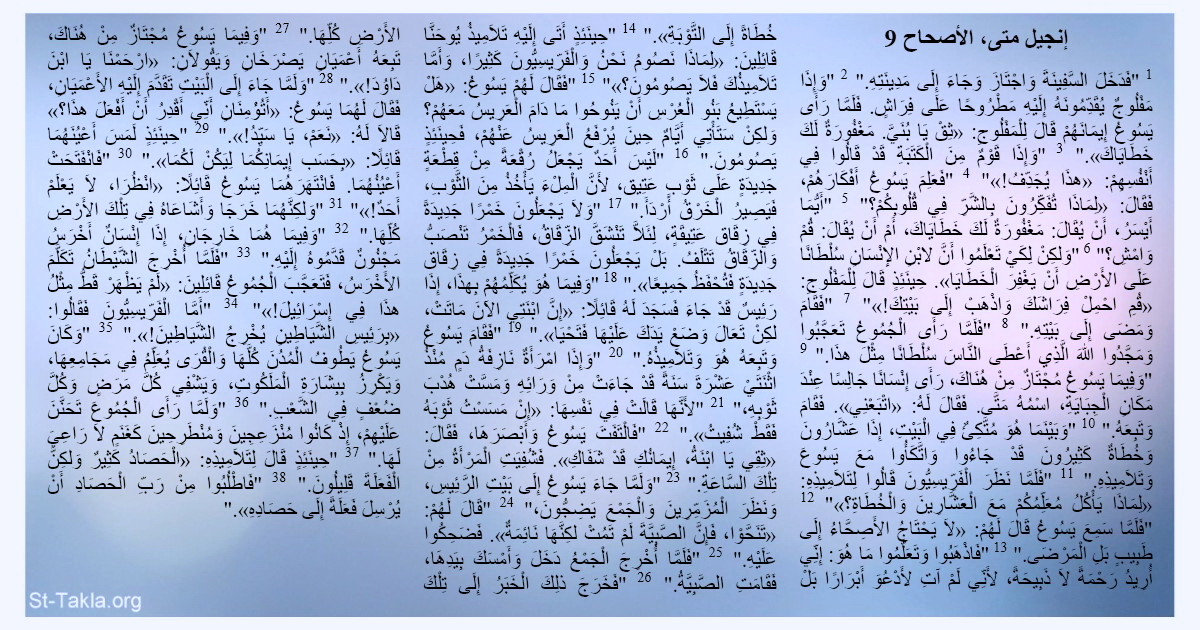 إنجيل متى، الأصحاح 9
1 "فَدَخَلَ السَّفِينَةَ وَاجْتَازَ وَجَاءَ إِلَى مَدِينَتِهِ." 2 "وَإِذَا
مَفْلُوجٌ يُقَدِّمُونَهُ إِلَيْهِ مَطْرُوحًا عَلَى فِرَاشٍ. فَلَمَّا رَأَى
يَسُوعُ إِيمَانَهُمْ قَالَ لِلْمَفْلُوجِ: «ثِقْ يَا بُنَيَّ. مَغْفُورَةٌ لَكَ
خَطَايَاكَ»." 3 "وَإِذَا قَوْمٌ مِنَ الْكَتَبَةِ قَدْ قَالُوا فِي
أَنْفُسِهِمْ: «هذَا يُجَدِّفُ!»" 4 "فَعَلِمَ يَسُوعُ أَفْكَارَهُمْ،
فَقَالَ: «لِمَاذَا تُفَكِّرُونَ بِالشَّرِّ فِي قُلُوبِكُمْ؟" 5 "أَيُّمَا
أَيْسَرُ، أَنْ يُقَالَ: مَغْفُورَةٌ لَكَ خَطَايَاكَ، أَمْ أَنْ يُقَالَ: قُمْ
وَامْشِ؟" 6 "وَلكِنْ لِكَيْ تَعْلَمُوا أَنَّ لابْنِ الإِنْسَانِ سُلْطَانًا
عَلَى الأَرْضِ أَنْ يَغْفِرَ الْخَطَايَا». حِينَئِذٍ قَالَ لِلْمَفْلُوجِ:
«قُمِ احْمِلْ فِرَاشَكَ وَاذْهَبْ إِلَى بَيْتِكَ!»" 7 "فَقَامَ
وَمَضَى إِلَى بَيْتِهِ." 8 "فَلَمَّا رَأَى الْجُمُوعُ تَعَجَّبُوا
وَمَجَّدُوا اللهَ الَّذِي أَعْطَى النَّاسَ سُلْطَانًا مِثْلَ هذَا." 9
"وَفِيمَا يَسُوعُ مُجْتَازٌ مِنْ هُنَاكَ، رَأَى إِنْسَانًا جَالِسًا عِنْدَ
مَكَانِ الْجِبَايَةِ، اسْمُهُ مَتَّى. فَقَالَ لَهُ: «اتْبَعْنِي». فَقَامَ
وَتَبِعَهُ." 10 "وَبَيْنَمَا هُوَ مُتَّكِئٌ فِي الْبَيْتِ، إِذَا عَشَّارُونَ
وَخُطَاةٌ كَثِيرُونَ قَدْ جَاءُوا وَاتَّكَأُوا مَعَ يَسُوعَ
وَتَلاَمِيذِهِ." 11 "فَلَمَّا نَظَرَ الْفَرِّيسِيُّونَ قَالُوا لِتَلاَمِيذِهِ:
«لِمَاذَا يَأْكُلُ مُعَلِّمُكُمْ مَعَ الْعَشَّارِينَ وَالْخُطَاةِ؟»" 12
"فَلَمَّا سَمِعَ يَسُوعُ قَالَ لَهُمْ: «لاَ يَحْتَاجُ الأَصِحَّاءُ إِلَى
طَبِيبٍ بَلِ الْمَرْضَى." 13 "فَاذْهَبُوا وَتَعَلَّمُوا مَا هُوَ: إِنِّي
أُرِيدُ رَحْمَةً لاَ ذَبِيحَةً، لأَنِّي لَمْ آتِ لأَدْعُوَ أَبْرَارًا بَلْ
خُطَاةً إِلَى التَّوْبَةِ»." 14 "حِينَئِذٍ أَتَى إِلَيْهِ تَلاَمِيذُ يُوحَنَّا
قَائِلِينَ: «لِمَاذَا نَصُومُ نَحْنُ وَالْفَرِّيسِيُّونَ كَثِيرًا، وَأَمَّا
تَلاَمِيذُكَ فَلاَ يَصُومُونَ؟»" 15 "فَقَالَ لَهُمْ يَسُوعُ: «هَلْ
يَسْتَطِيعُ بَنُو الْعُرْسِ أَنْ يَنُوحُوا مَا دَامَ الْعَرِيسُ مَعَهُمْ؟
وَلكِنْ سَتَأْتِي أَيَّامٌ حِينَ يُرْفَعُ الْعَرِيسُ عَنْهُمْ، فَحِينَئِذٍ
يَصُومُونَ." 16 "لَيْسَ أَحَدٌ يَجْعَلُ رُقْعَةً مِنْ قِطْعَةٍ
جَدِيدَةٍ عَلَى ثَوْبٍ عَتِيق، لأَنَّ الْمِلْءَ يَأْخُذُ مِنَ الثَّوْبِ،
فَيَصِيرُ الْخَرْقُ أَرْدَأَ." 17 "وَلاَ يَجْعَلُونَ خَمْرًا جَدِيدَةً
فِي زِقَاق عَتِيقَةٍ، لِئَلاَّ تَنْشَقَّ الزِّقَاقُ، فَالْخَمْرُ تَنْصَبُّ
وَالزِّقَاقُ تَتْلَفُ. بَلْ يَجْعَلُونَ خَمْرًا جَدِيدَةً فِي زِقَاق
جَدِيدَةٍ فَتُحْفَظُ جَمِيعًا»." 18 "وَفِيمَا هُوَ يُكَلِّمُهُمْ بِهذَا، إِذَا
رَئِيسٌ قَدْ جَاءَ فَسَجَدَ لَهُ قَائِلاً: «إِنَّ ابْنَتِي الآنَ مَاتَتْ،
لكِنْ تَعَالَ وَضَعْ يَدَكَ عَلَيْهَا فَتَحْيَا»." 19 "فَقَامَ يَسُوعُ
وَتَبِعَهُ هُوَ وَتَلاَمِيذُهُ." 20 "وَإِذَا امْرَأَةٌ نَازِفَةُ دَمٍ مُنْذُ
اثْنَتَيْ عَشْرَةَ سَنَةً قَدْ جَاءَتْ مِنْ وَرَائِهِ وَمَسَّتْ هُدْبَ
ثَوْبِهِ،" 21 "لأَنَّهَا قَالَتْ فِي نَفْسِهَا: «إِنْ مَسَسْتُ ثَوْبَهُ
فَقَطْ شُفِيتُ»." 22 "فَالْتَفَتَ يَسُوعُ وَأَبْصَرَهَا، فَقَالَ:
«ثِقِي يَا ابْنَةُ، إِيمَانُكِ قَدْ شَفَاكِ». فَشُفِيَتِ الْمَرْأَةُ مِنْ
تِلْكَ السَّاعَةِ." 23 "وَلَمَّا جَاءَ يَسُوعُ إِلَى بَيْتِ الرَّئِيسِ،
وَنَظَرَ الْمُزَمِّرِينَ وَالْجَمْعَ يَضِجُّونَ،" 24 "قَالَ لَهُمْ:
«تَنَحَّوْا، فَإِنَّ الصَّبِيَّةَ لَمْ تَمُتْ لكِنَّهَا نَائِمَةٌ». فَضَحِكُوا
عَلَيْهِ." 25 "فَلَمَّا أُخْرِجَ الْجَمْعُ دَخَلَ وَأَمْسَكَ بِيَدِهَا،
فَقَامَتِ الصَّبِيَّةُ." 26 "فَخَرَجَ ذلِكَ الْخَبَرُ إِلَى تِلْكَ
الأَرْضِ كُلِّهَا." 27 "وَفِيمَا يَسُوعُ مُجْتَازٌ مِنْ هُنَاكَ،
تَبِعَهُ أَعْمَيَانِ يَصْرَخَانِ وَيَقُولاَنِ: «ارْحَمْنَا يَا ابْنَ
دَاوُدَ!»." 28 "وَلَمَّا جَاءَ إِلَى الْبَيْتِ تَقَدَّمَ إِلَيْهِ الأَعْمَيَانِ،
فَقَالَ لَهُمَا يَسُوعُ: «أَتُؤْمِنَانِ أَنِّي أَقْدِرُ أَنْ أَفْعَلَ هذَا؟»
قَالاَ لَهُ: «نَعَمْ، يَا سَيِّدُ!»." 29 "حِينَئِذٍ لَمَسَ أَعْيُنَهُمَا
قَائِلاً: «بِحَسَبِ إِيمَانِكُمَا لِيَكُنْ لَكُمَا»." 30 "فَانْفَتَحَتْ
أَعْيُنُهُمَا. فَانْتَهَرَهُمَا يَسُوعُ قَائِلاً: «انْظُرَا، لاَ يَعْلَمْ
أَحَدٌ!»" 31 "وَلكِنَّهُمَا خَرَجَا وَأَشَاعَاهُ فِي تِلْكَ الأَرْضِ
كُلِّهَا." 32 "وَفِيمَا هُمَا خَارِجَانِ، إِذَا إِنْسَانٌ أَخْرَسُ
مَجْنُونٌ قَدَّمُوهُ إِلَيْهِ." 33 "فَلَمَّا أُخْرِجَ الشَّيْطَانُ تَكَلَّمَ
الأَخْرَسُ، فَتَعَجَّبَ الْجُمُوعُ قَائِلِينَ: «لَمْ يَظْهَرْ قَطُّ مِثْلُ
هذَا فِي إِسْرَائِيلَ!»" 34 "أَمَّا الْفَرِّيسِيُّونَ فَقَالُوا:
«بِرَئِيسِ الشَّيَاطِينِ يُخْرِجُ الشَّيَاطِينَ!»." 35 "وَكَانَ
يَسُوعُ يَطُوفُ الْمُدُنَ كُلَّهَا وَالْقُرَى يُعَلِّمُ فِي مَجَامِعِهَا،
وَيَكْرِزُ بِبِشَارَةِ الْمَلَكُوتِ، وَيَشْفِي كُلَّ مَرَضٍ وَكُلَّ
ضُعْفٍ فِي الشَّعْبِ." 36 "وَلَمَّا رَأَى الْجُمُوعَ تَحَنَّنَ
عَلَيْهِمْ، إِذْ كَانُوا مُنْزَعِجِينَ وَمُنْطَرِحِينَ كَغَنَمٍ لاَ رَاعِيَ
لَهَا." 37 "حِينَئِذٍ قَالَ لِتَلاَمِيذِهِ: «الْحَصَادُ كَثِيرٌ وَلكِنَّ
الْفَعَلَةَ قَلِيلُونَ." 38 "فَاطْلُبُوا مِنْ رَبِّ الْحَصَادِ أَنْ
يُرْسِلَ فَعَلَةً إِلَى حَصَادِهِ»."
St-Takla.org